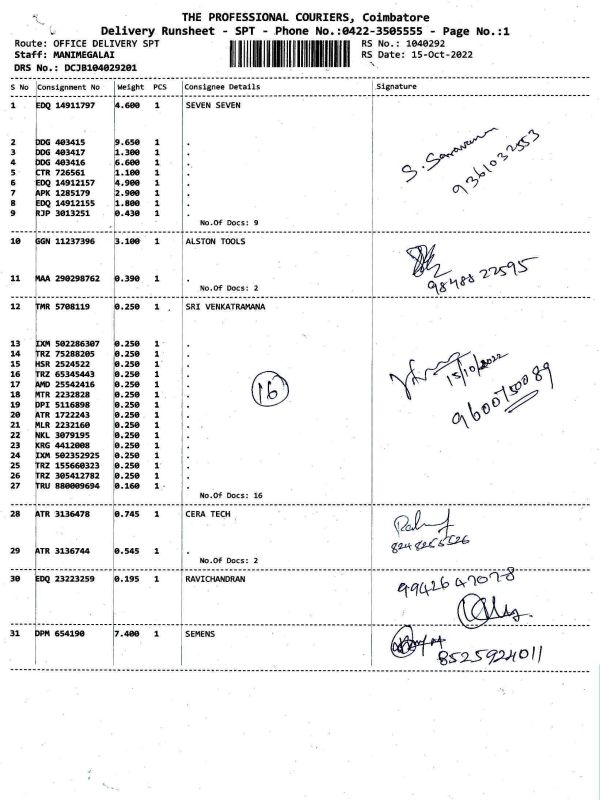 THE PROFESSIONAL COURIERS, Coimbatore
Delivery Runsheet - SPT - Phone No.:0422-3505555 - Page No.:1
Route: OFFICE DELIVERY SPT RS No.: 1040292
Staff: MANIMEGALAI RS Date: 15-Oct-2022
DRS No.: DCJB104029201
S No Consignment No Weight PCS Consignee Details Signature
1 EDQ 14911797 4.600 1 SEVEN SEVEN
2 DDG 403415 9.650 1 .
3 DDG 403417 1.300 1 .
4 DDG 403416 6.600 1 .
5 CTR 726561 1.100 1 .
6 EDQ 14912157 4.900 1 .
7 APK 1285179 2.900 1 .
8 EDQ 14912155 1.800 1 .
9 RJP 3013251 0.430 1 .
S. Saravanan
9361032553
No.Of Docs: 9
10 GGN 11237396 3.100 1 ALSTON TOOLS
11 MAA 290298762 0.390 1 .
9848822595
No.Of Docs: 2
12 TMR 5708119 0.250 1 SRI VENKATRAMANA
13 IXM 502286307 0.250 1 .
14 TRZ 75288205 0.250 1 .
15 HSR 2524522 0.250 1 .
16 TRZ 65345443 0.250 1 .
17 AMD 25542416 0.250 1 .
18 MTR 2232828 0.250 1 .
19 DPI 5116898 0.250 1 .
20 ATR 1722243 0.250 1 .
21 MLR 2232160 0.250 1 .
22 NKL 3079195 0.250 1 .
23 KRG 4412008 0.250 1 .
24 IXM 502352925 0.250 1 .
25 TRZ 155660323 0.250 1 .
26 TRZ 305412782 0.250 1 .
27 TRU 880009694 0.160 1 .
16
15/10/2022
9600750089
No.Of Docs: 16
28 ATR 3136478 0.745 1 CERA TECH
29 ATR 3136744 0.545 1 .
No.Of Docs: 2
30 EDQ 23223259 0.195 1 RAVICHANDRAN
9942647078
31 DPM 654190 7.400 1 SEMENS
8525924011